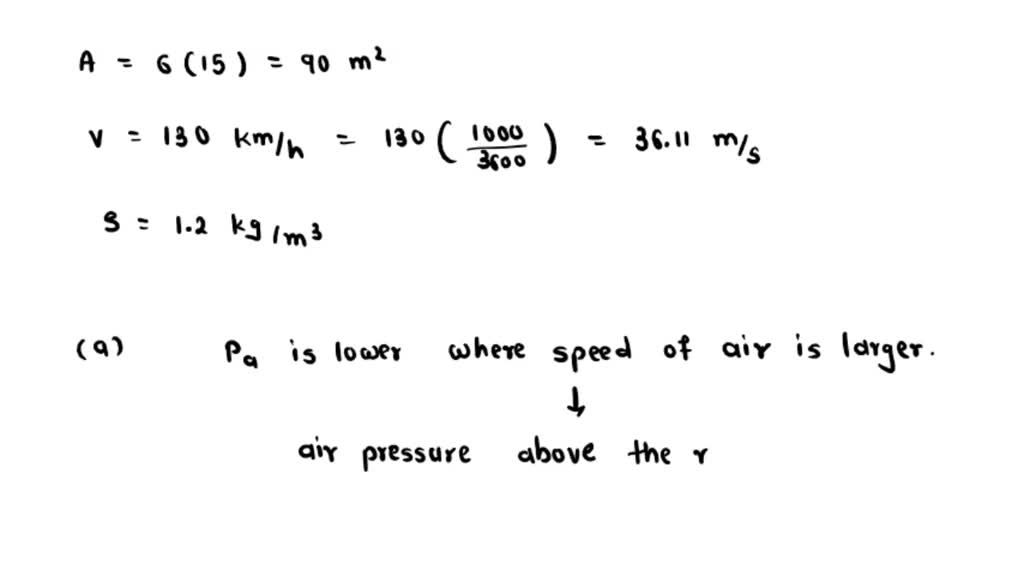 A = 6 (15) = 90 m²
v = 130 km/h = 130 (1000/3600) = 36.11 m/s
S = 1.2 kg/m³
(a) Pa is lower where speed of air is larger.
↓
air pressure above the r